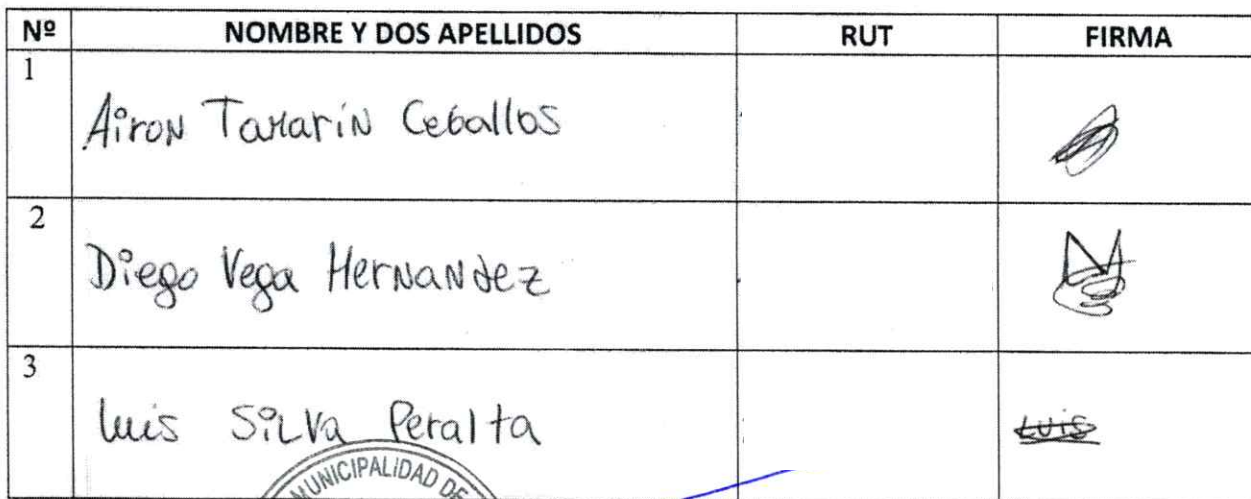 Nº NOMBRE Y DOS APELLIDOS RUT FIRMA
1 Airon Tamarin Ceballos
2 Diego Vega Hernandez
3 Luis Silva Peralta Luis
MUNICIPALIDAD DE